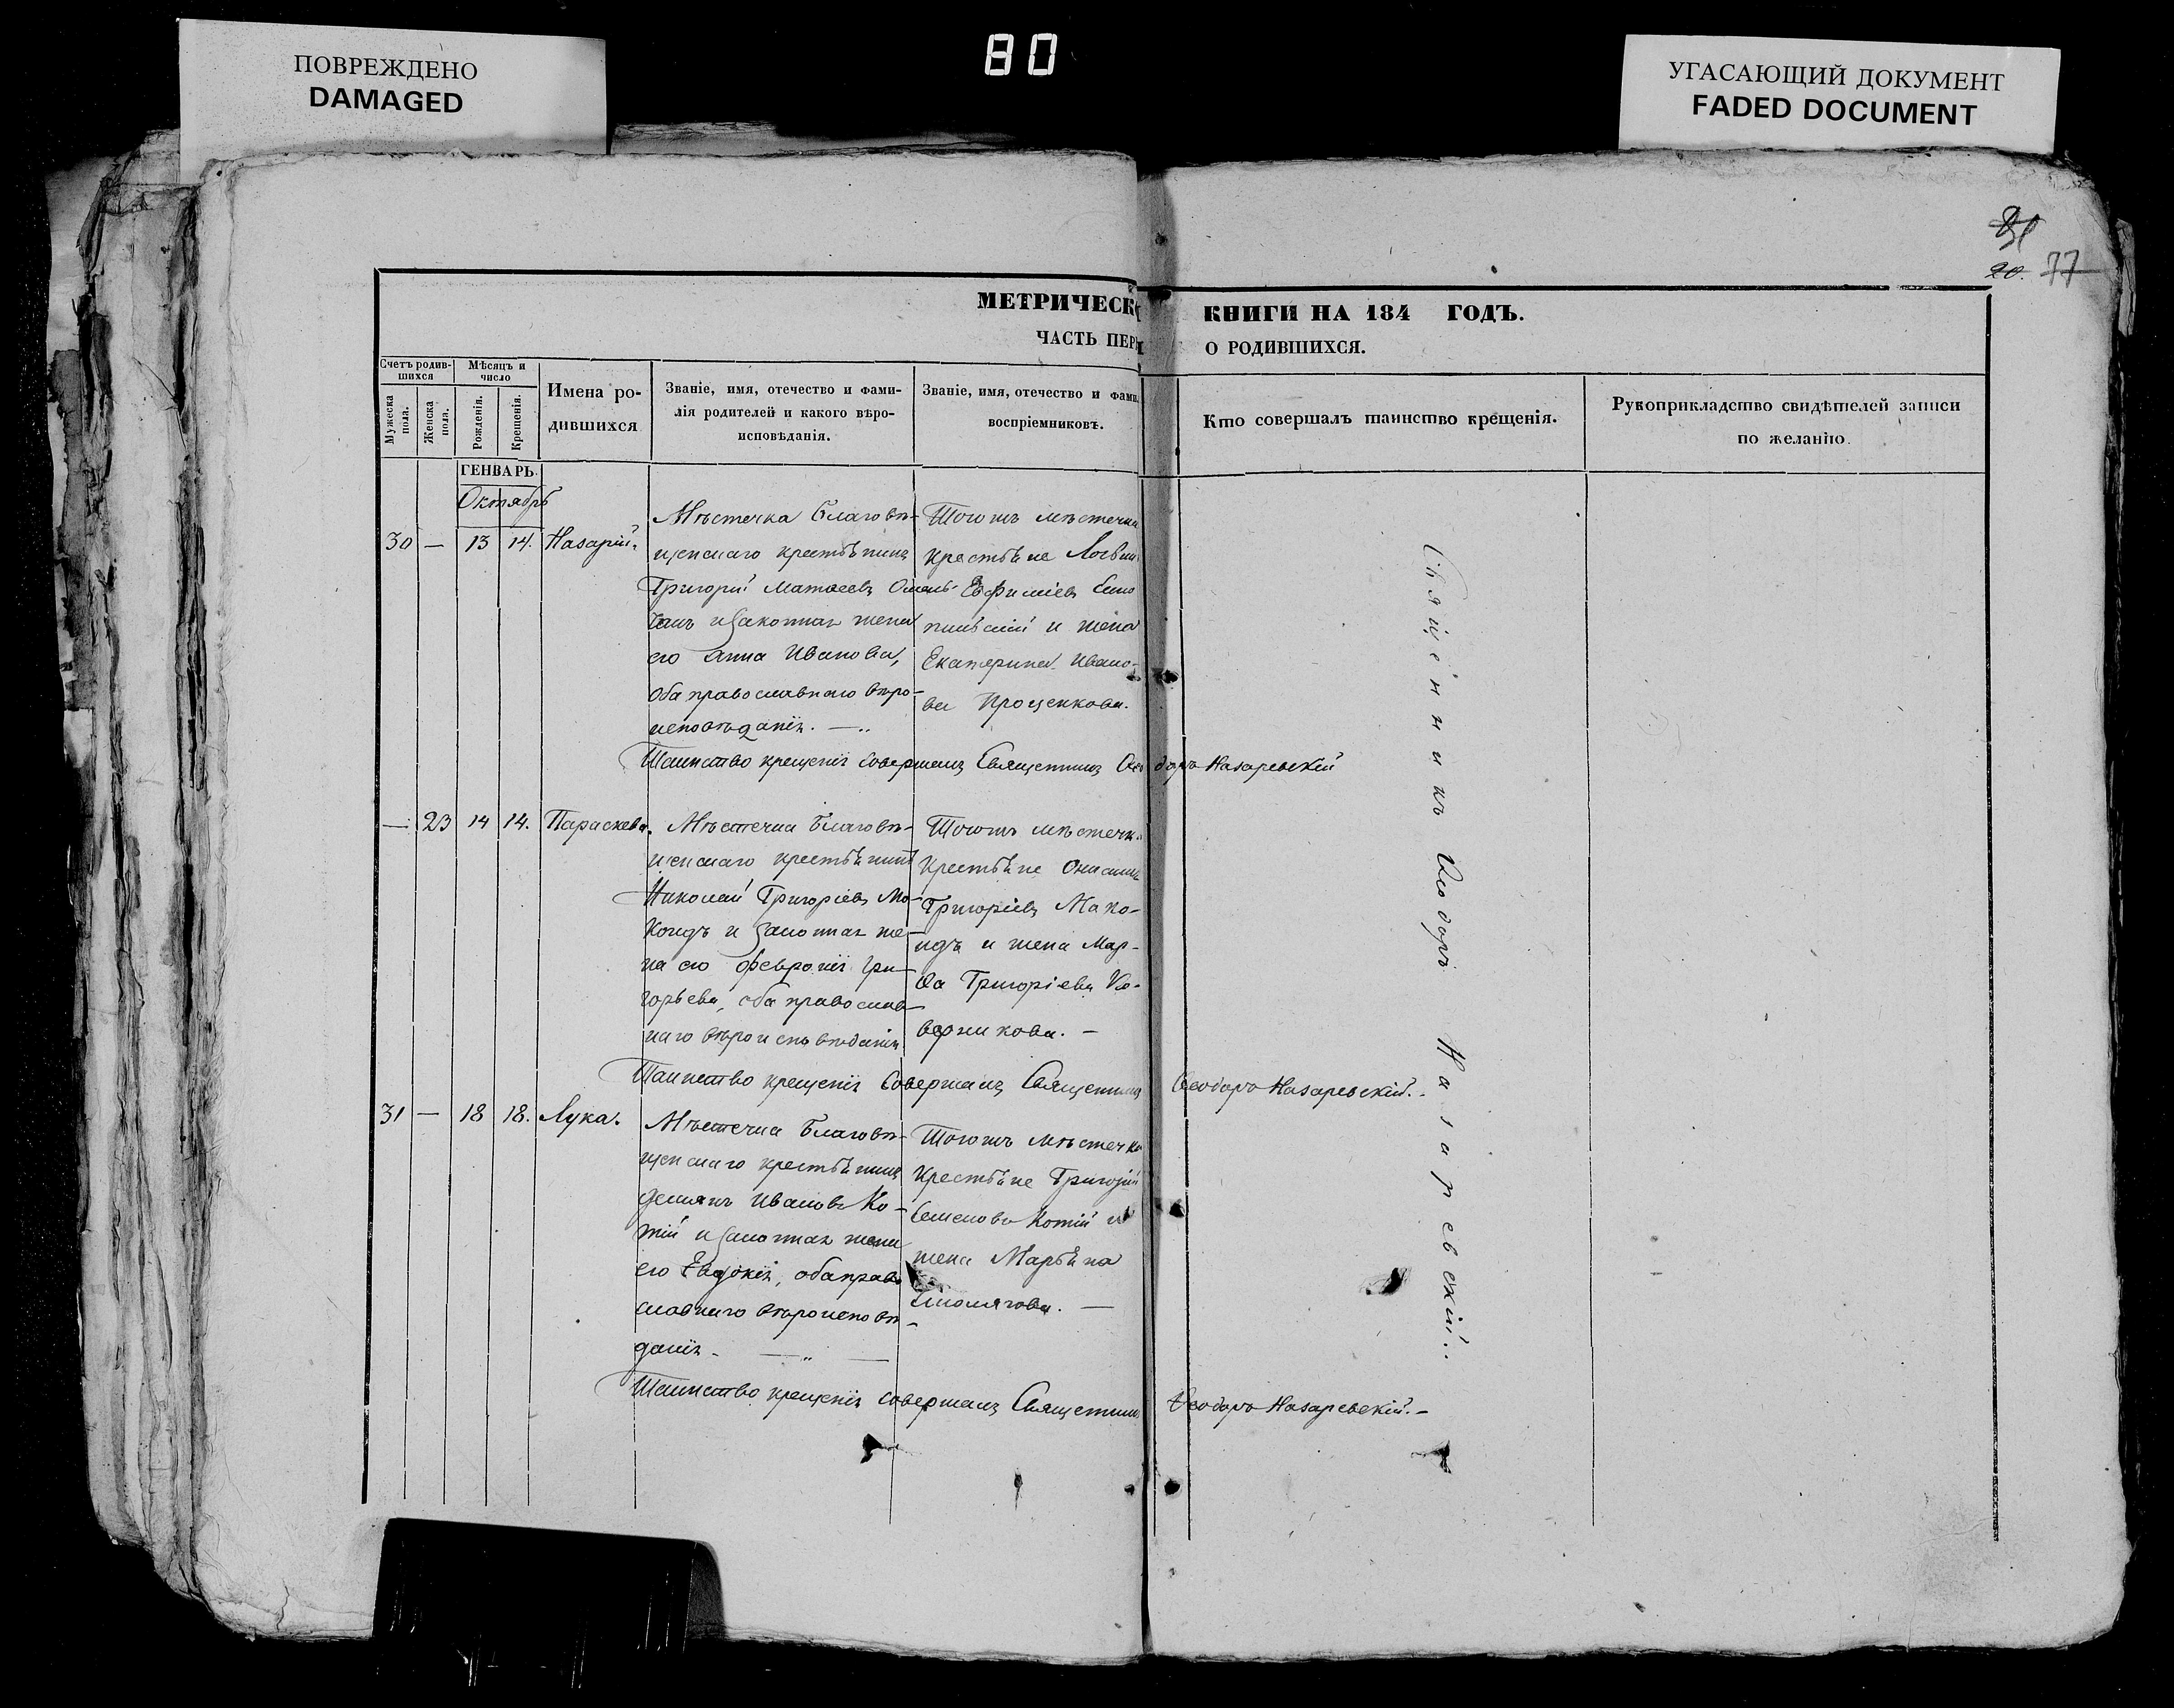 ПОВРЕЖДЕНО
DAMAGED
80
УГАСАЮЩИЙ ДОКУМЕНТ
FADED DOCUMENT
20. 77
МЕТРИЧЕСК КНИГИ НА 184 ГОДЪ.
ЧАСТЬ ПЕР О РОДИВШИХСЯ.
Счетъ родив-
шихся
Мужеска пола.
Женска пола.
Мѣсяцъ и
число
Рожденія.
Крещенія.
Имена ро-
дившихся
Званіе, имя, отечество и фами-
лія родителей и какого вѣро-
исповѣданія.
Званіе, имя, отечество и фами
воспріемниковъ.
Кто совершалъ таинство крещенія.
Рукоприкладство свидѣтелей записи
по желанію.
ГЕНВАРЬ.
Октябрь
30 — 13 14. Назарій.
Мѣстечка Благовѣ-
щенскаго крестьянинъ
Григорій Матвеевъ
и законная жена
его Анна Иванова,
оба православнаго вѣро-
исповѣданія. —
Тогожъ мѣстечка
крестьяне
Евфиміевъ
и жена
Екатерина Ивано-
ва Проценкова.
Таинство крещенія совершалъ Священникъ Ѳеодоръ Назаревскій
— 23 14 14. Параскева.
Мѣстечка Благовѣ-
щенскаго крестьянинъ
Николай Григоріевъ Ма-
коидъ и законная же-
на его Февронія Гри-
горьева, оба православ-
наго вѣроисповѣданія
Тогожъ мѣстечка
крестьяне Онисимъ
Григоріевъ Мако-
идъ и жена Мар-
ѳа Григоріева
Таинство крещенія совершалъ Священникъ Ѳеодоръ Назаревскій.
31 — 18 18. Лука.
Мѣстечка Благовѣ-
щенскаго крестьянинъ
Демянъ Ивановъ Ко-
тій и законная жена
его Евдокія, оба право
славнаго вѣроисповѣ-
данія —
Тогожъ мѣстечка
крестьяне Григорій
Семеновъ Котій и
жена Марьяна
Таинство крещенія совершалъ Священникъ Ѳеодоръ Назаревскій. —
Священникъ Ѳеодоръ Назаревскій.